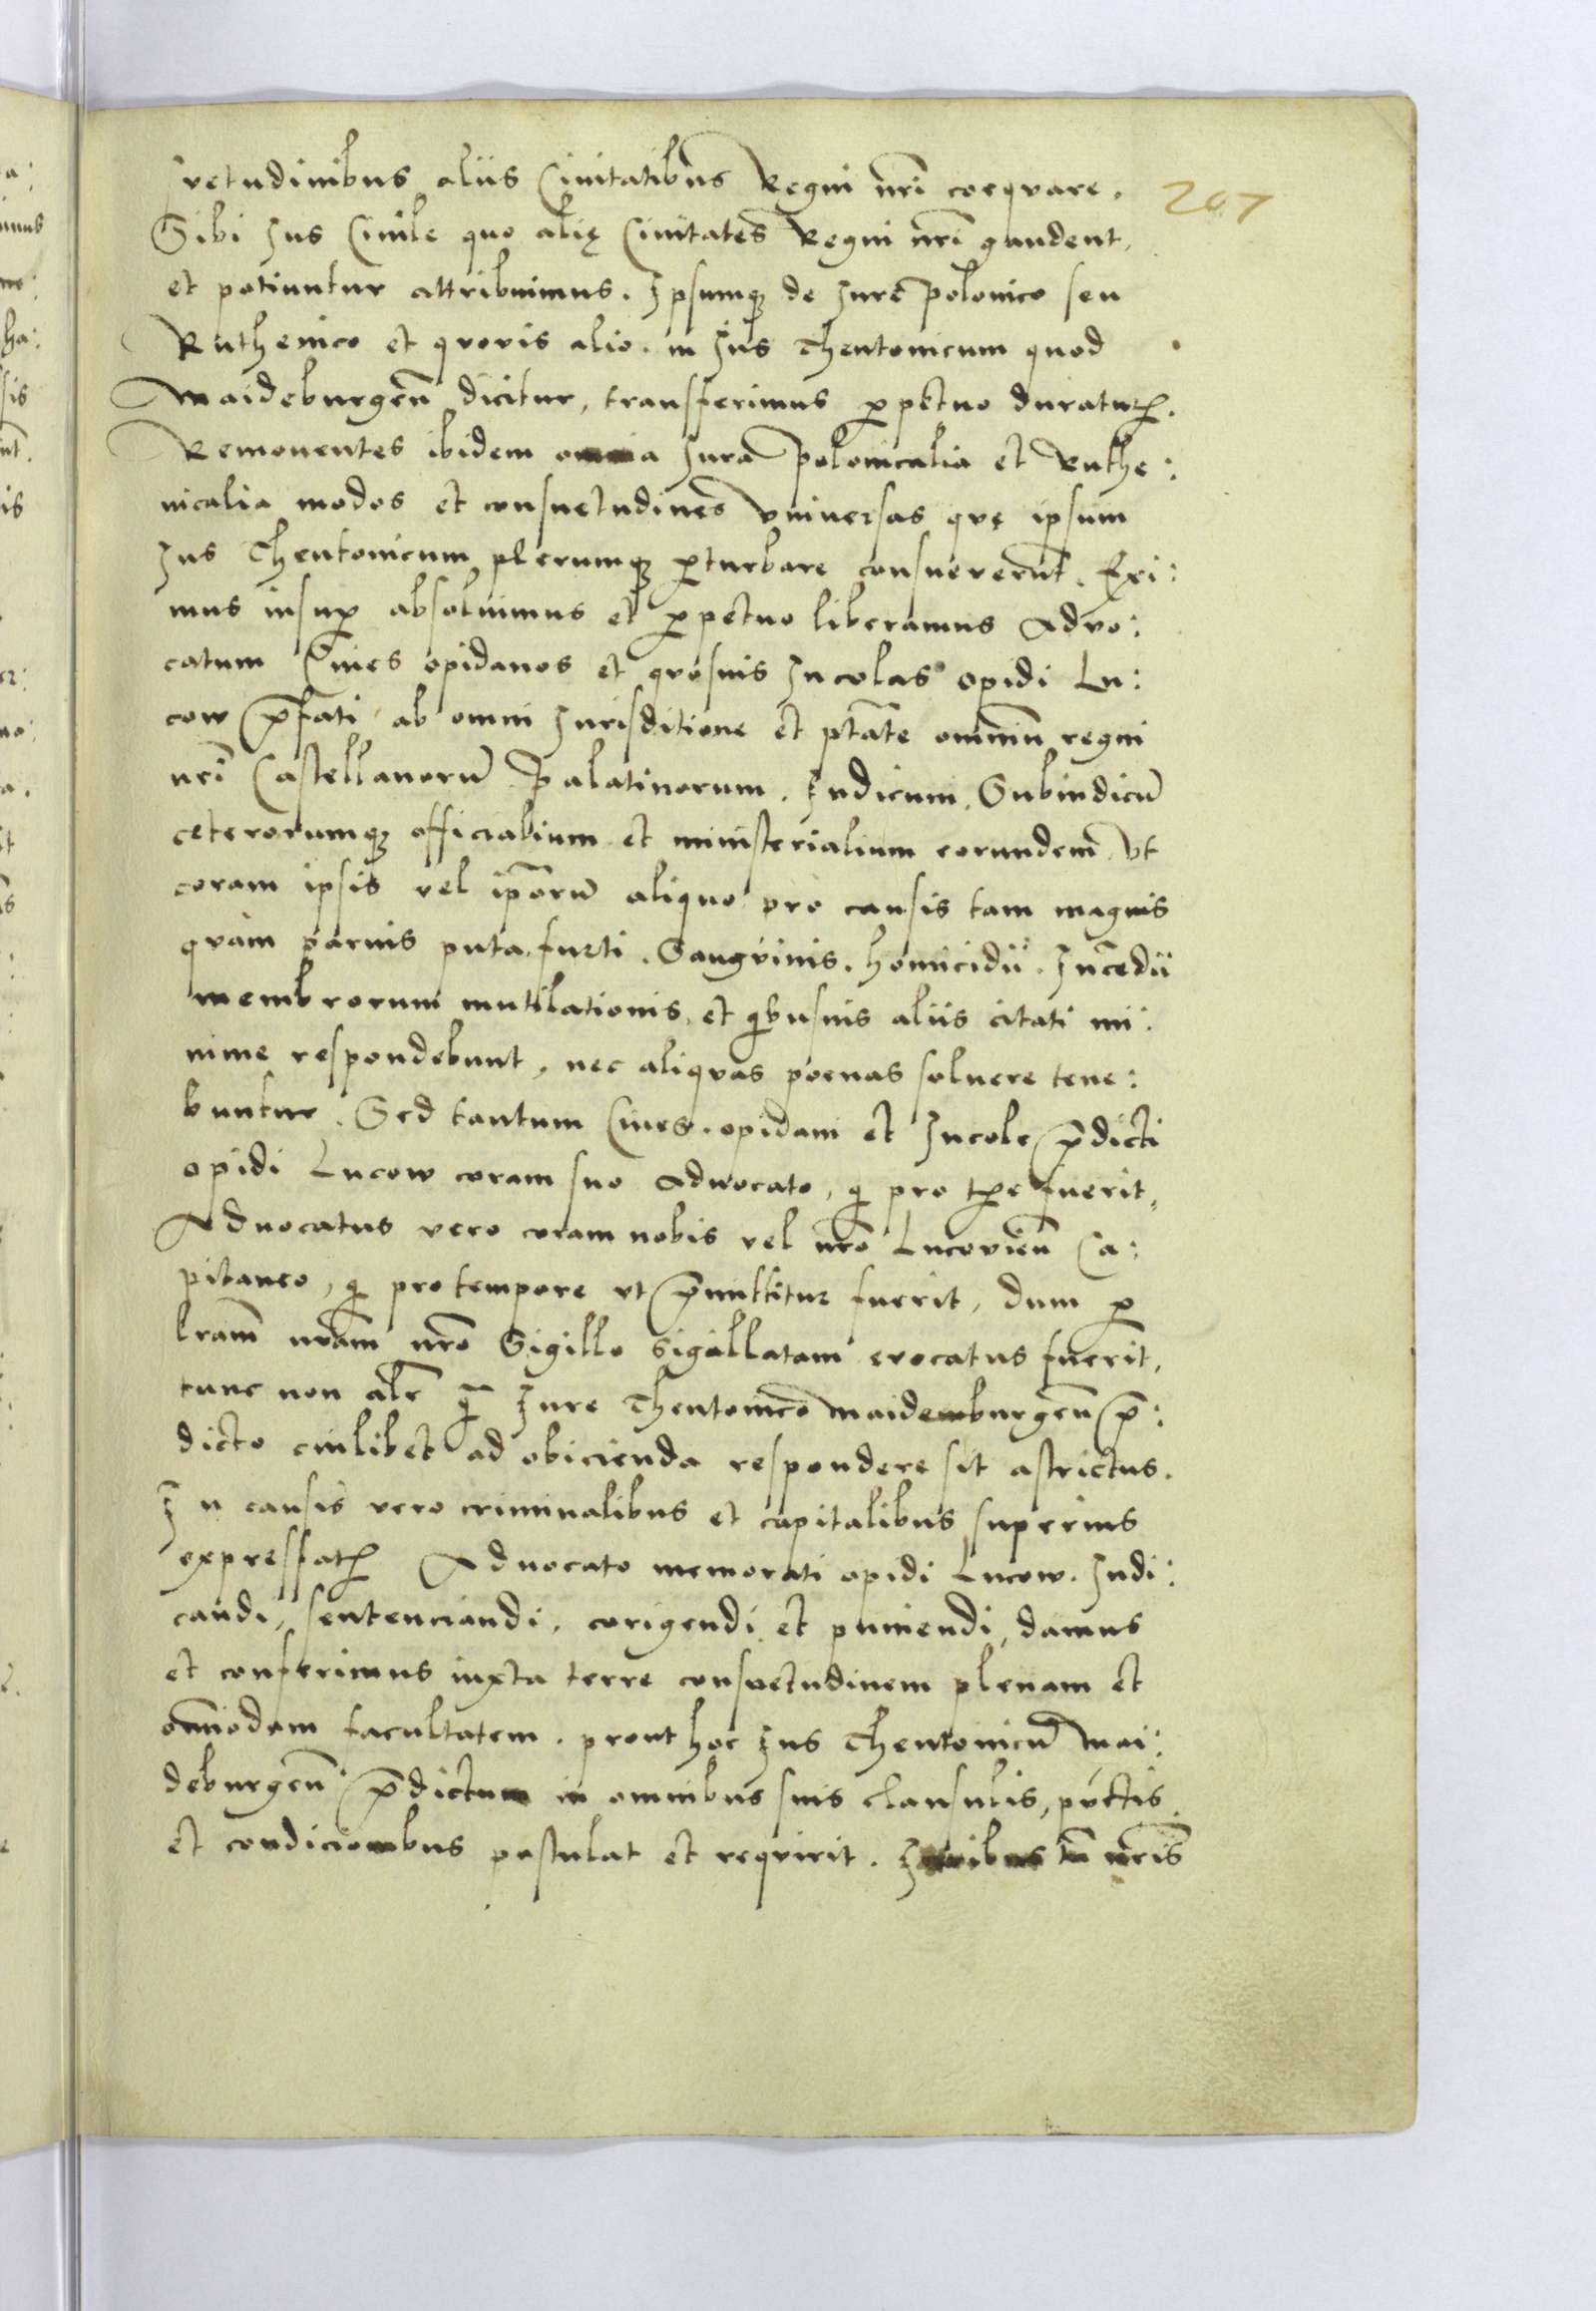 suetudinibus aliis Ciuitatibus Regni nr̃i coequare. 207
Sibi Jus Ciuile quo alię Ciuitates Regni nr̃i gaudent,
et potiuntur attribuimus. Jpsumqꝫ de Jure Polonico seu
Ruthenico et quouis alio. in Jus Theutonicum quod
Maideburgeñ dicitur, transferimus ꝑpetuo duraturꝭ.
Remouentes ibidem omnia Jura Polonicalia et Ruthe:
nicalia modos et consuetudines vniuersas quę ipsum
Jus Theutonicum plerumqꝫ ꝑturbare consueuerũt. Exi:
mus insuꝑ absoluimus et ꝑpetuo liberamus Aduo:
catum Ciues opidanos et quosuis Jncolas opidi Lu:
cow p̃fati ab omni Jurisditione et ptãte omniũ regni
nr̃i Castellanorũ Palatinorum. Judicum. Subiudicũ
ceterorumqꝫ officialium et ministerialium eorundem. vt
coram ipsis vel ip̃orũ aliquo pro causis tam magnis
quam paruis puta. furti. Sanguinis. homicidii. Jncẽdii
membrorum mutilationis, et qibusuis aliis citati mi:
nime respondebunt, nec aliquas poenas soluere tene:
buntur. Sed tantum Ciues. opidani et Jncole p̃dicti
opidi Lucow coram suo Aduocato, qi pro tꝑe fuerit,
Aduocatus vero coram nobis vel nr̃o Lucouieñ Ca:
pitaneo, qi pro tempore vt p̃mittitur fuerit, dum ꝑ
lr̃am nr̃am nr̃o Sigillo sigillatam euocatus fuerit,
tunc non alr̃ q̃ Jure Theutonico Maidemburgeñ p̃:
dicto cuilibet ad obicienda respondere sit astrictus.
Jn causis vero criminalibus et capitalibus superius
expressatꝭ Aduocato memorati opidi Lucow. Judi:
candi, sentenciandi, corigendi et puniendi, damus
et conferimus iuxta terre consuetudinem plenam et
om̃iodam facultatem. prout hoc Jus Theutonicũ Mai:
deburgeñ p̃dictum in omnibus suis clausulis, pũctis
et condicionibus postulat et requirit. Juribus tñ nr̃is